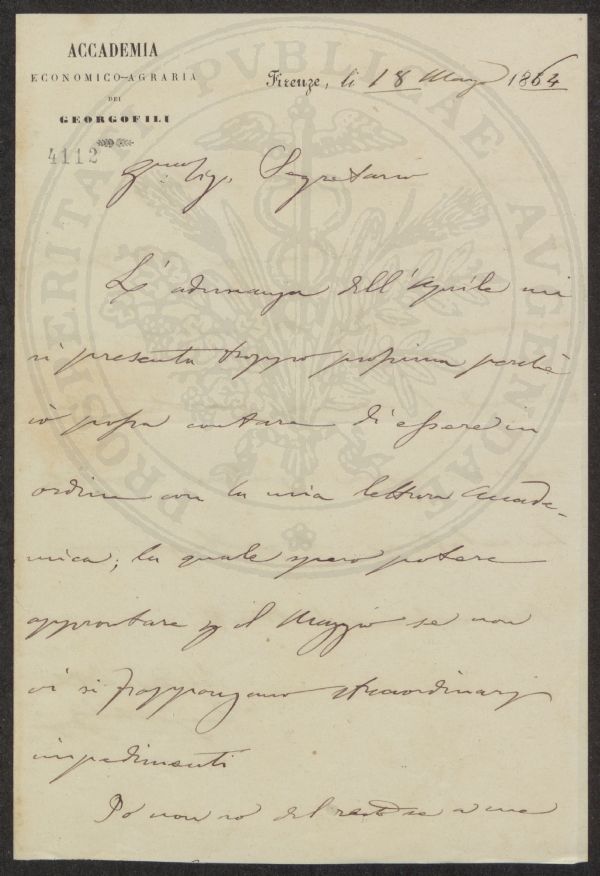 ACCADEMIA
ECONOMICO-AGRARIA
DEI
GEORGOFILI
4112
Firenze, li 18 Marzo 1864
Sig. Segretario
L'adunanza dell'Aprile mi
si presenta troppo prossima perchè
io possa contare di essere in
ordine con la mia lettura Accade-
mica; la quale spero potere
approntare p il Maggio se non
vi si frappongano straordinarj
impedimenti
Io non so del resto se a me
PROSPERITATI PUBLICAE AUGENDAE